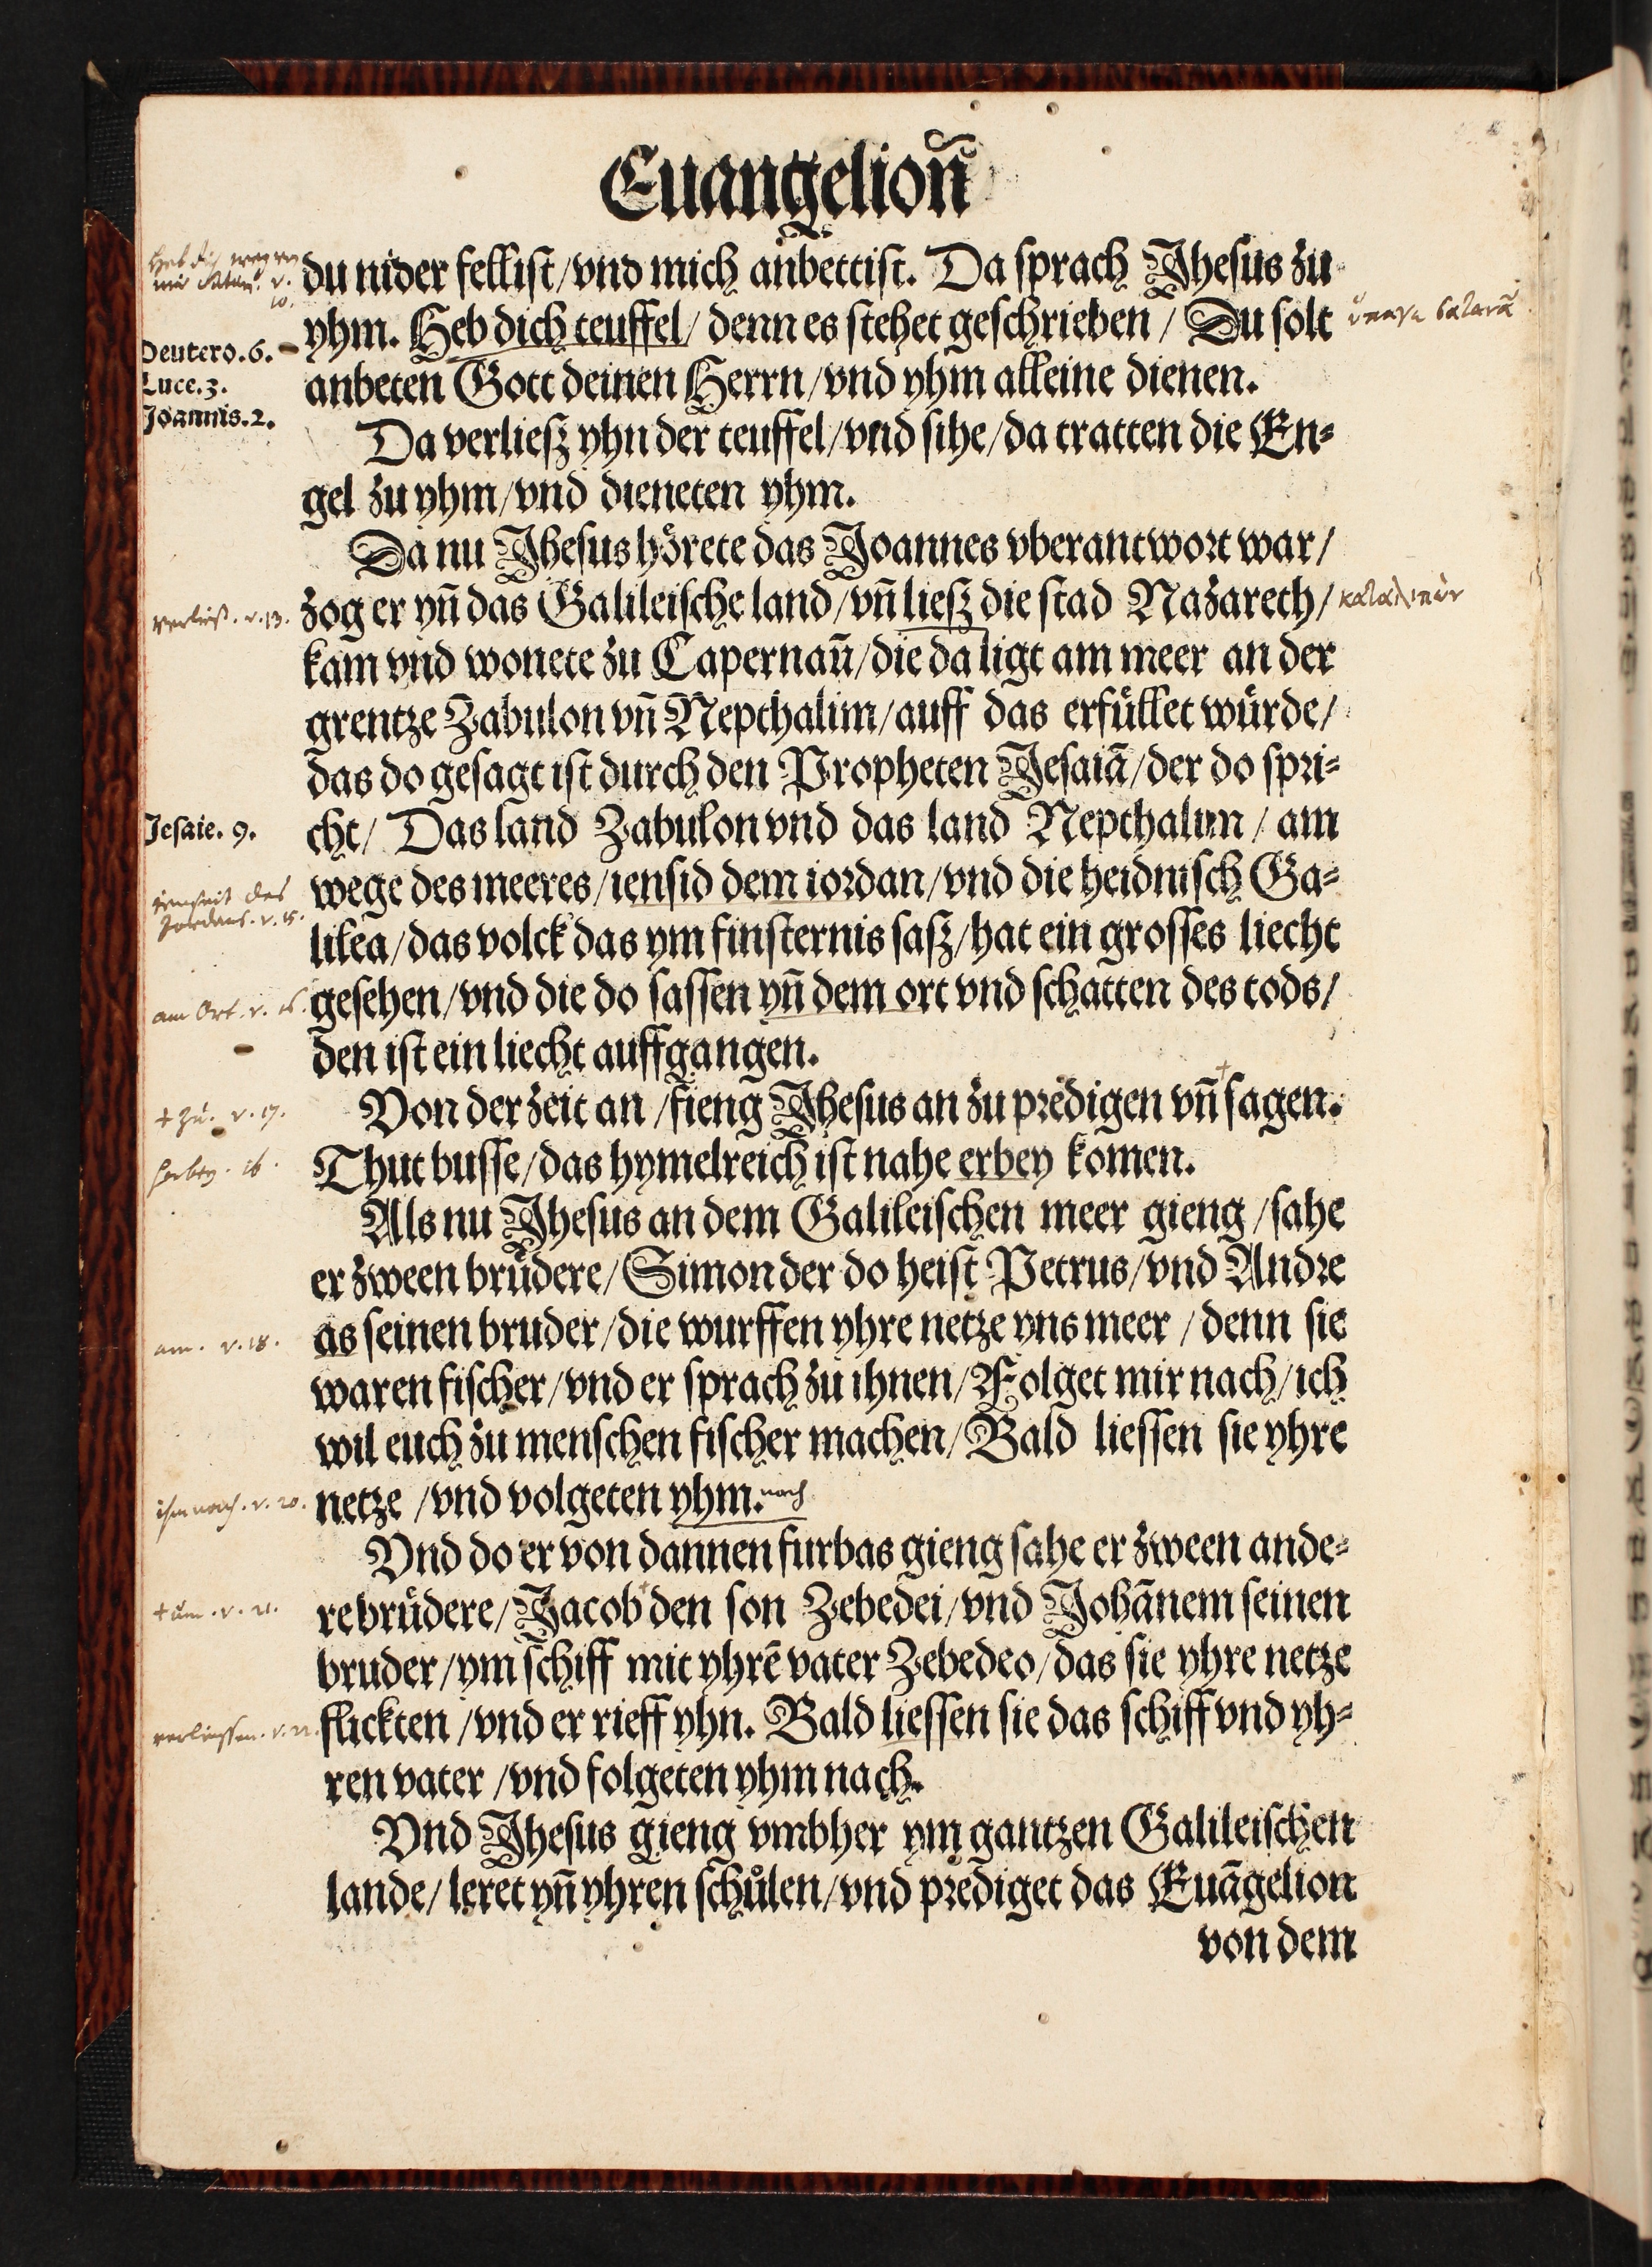 Euangelioñ
heb dich weg von
mir Satan. v.
10.
du nider fellist/vnd mich anbettist. Da sprach Jhesus zu
yhm. Heb dich teuffel/ denn es stehet geschrieben / Du solt
Deutero.6.
anbeten Gott deinen Herrn/vnd yhm alleine dienen.
Luce.3.
Joannis.2.
Da verliesz yhn der teuffel/vnd sihe/da tratten die En⸗
gel zu yhm/vnd dieneten yhm.
Da nu Jhesus hoͤrete das Joannes vberantwort war/
verließ. v. 13.
zog er yn̄ das Galileische land/vn̄ liesz die stad Nazareth/
καταλιπὼν
kam vnd wonete zu Capernau̅/die da ligt am meer an der
grentze Zabulon vn̄ Nepthalim/auff das erfuͤllet wuͤrde/
das do gesagt ist durch den Propheten Jesaiā/der do spri⸗
Jesaie. 9.
cht/ Das land Zabulon vnd das land Nepthalim / am
wege des meeres/iensid dem iordan/vnd die heidnisch Ga⸗
jenseit des
Jordans. v. 15.
lilea/das volck das ym finsternis sasz/hat ein grosses liecht
am Ort. v. 16.
gesehen/vnd die do sassen yn̄ dem ort vnd schatten des tods/
den ist ein liecht auffgangen.
+ zu. v. 17.
Von der zeit an /fieng Jhesus an zu predigen vn̄ + sagen.
herbey. ib.
Thut busse/das hymelreich ist nahe erbey komen.
Als nu Jhesus an dem Galileischen meer gieng /sahe
er zween bruͤdere/Simon der do heist Petrus/vnd Andre
am. v. 18.
as seinen bruder/die wurffen yhre netze yns meer /denn sie
waren fischer/vnd er sprach zu ihnen/Folget mir nach/ich
wil euch zu menschen fischer machen/Bald liessen sie yhre
ihm nach. v. 20.
netze /vnd volgeten yhm. nach
Vnd do er von dannen furbas gieng sahe er zween ande⸗
v. 21.
re bruͤdere/Jacob + den son Zebedei/vnd Johānem seinen
bruder/ym schiff mit yhrē vater Zebedeo/das sie yhre netze
verliessen. v. 22.
flickten /vnd er rieff yhn. Bald liessen sie das schiff vnd yh⸗
ren vater /vnd folgeten yhm nach.
Vnd Jhesus gieng vmbher ym gantzen Galileischen
lande/ leret yn̄ yhren schůlen/vnd prediget das Euāgelion
von dem